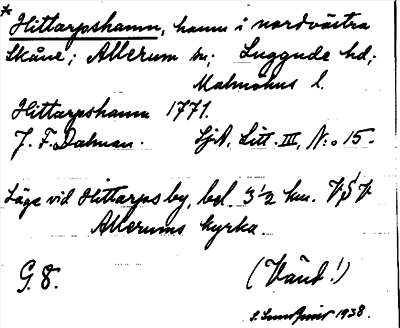 * Hittarpshamn, hamn i nordvästra
Skåne; Allerum sn; Luggude hd;
Malmöhus l.
Hittarpshamn 1771.
J. F. Dalman. SjA, Litt. III, N:o 15.
Läge vid Hittarps by, bel. 3 1/2 km. VSV
Allerums kyrka.
G. 8. (Vänd!)
1938.